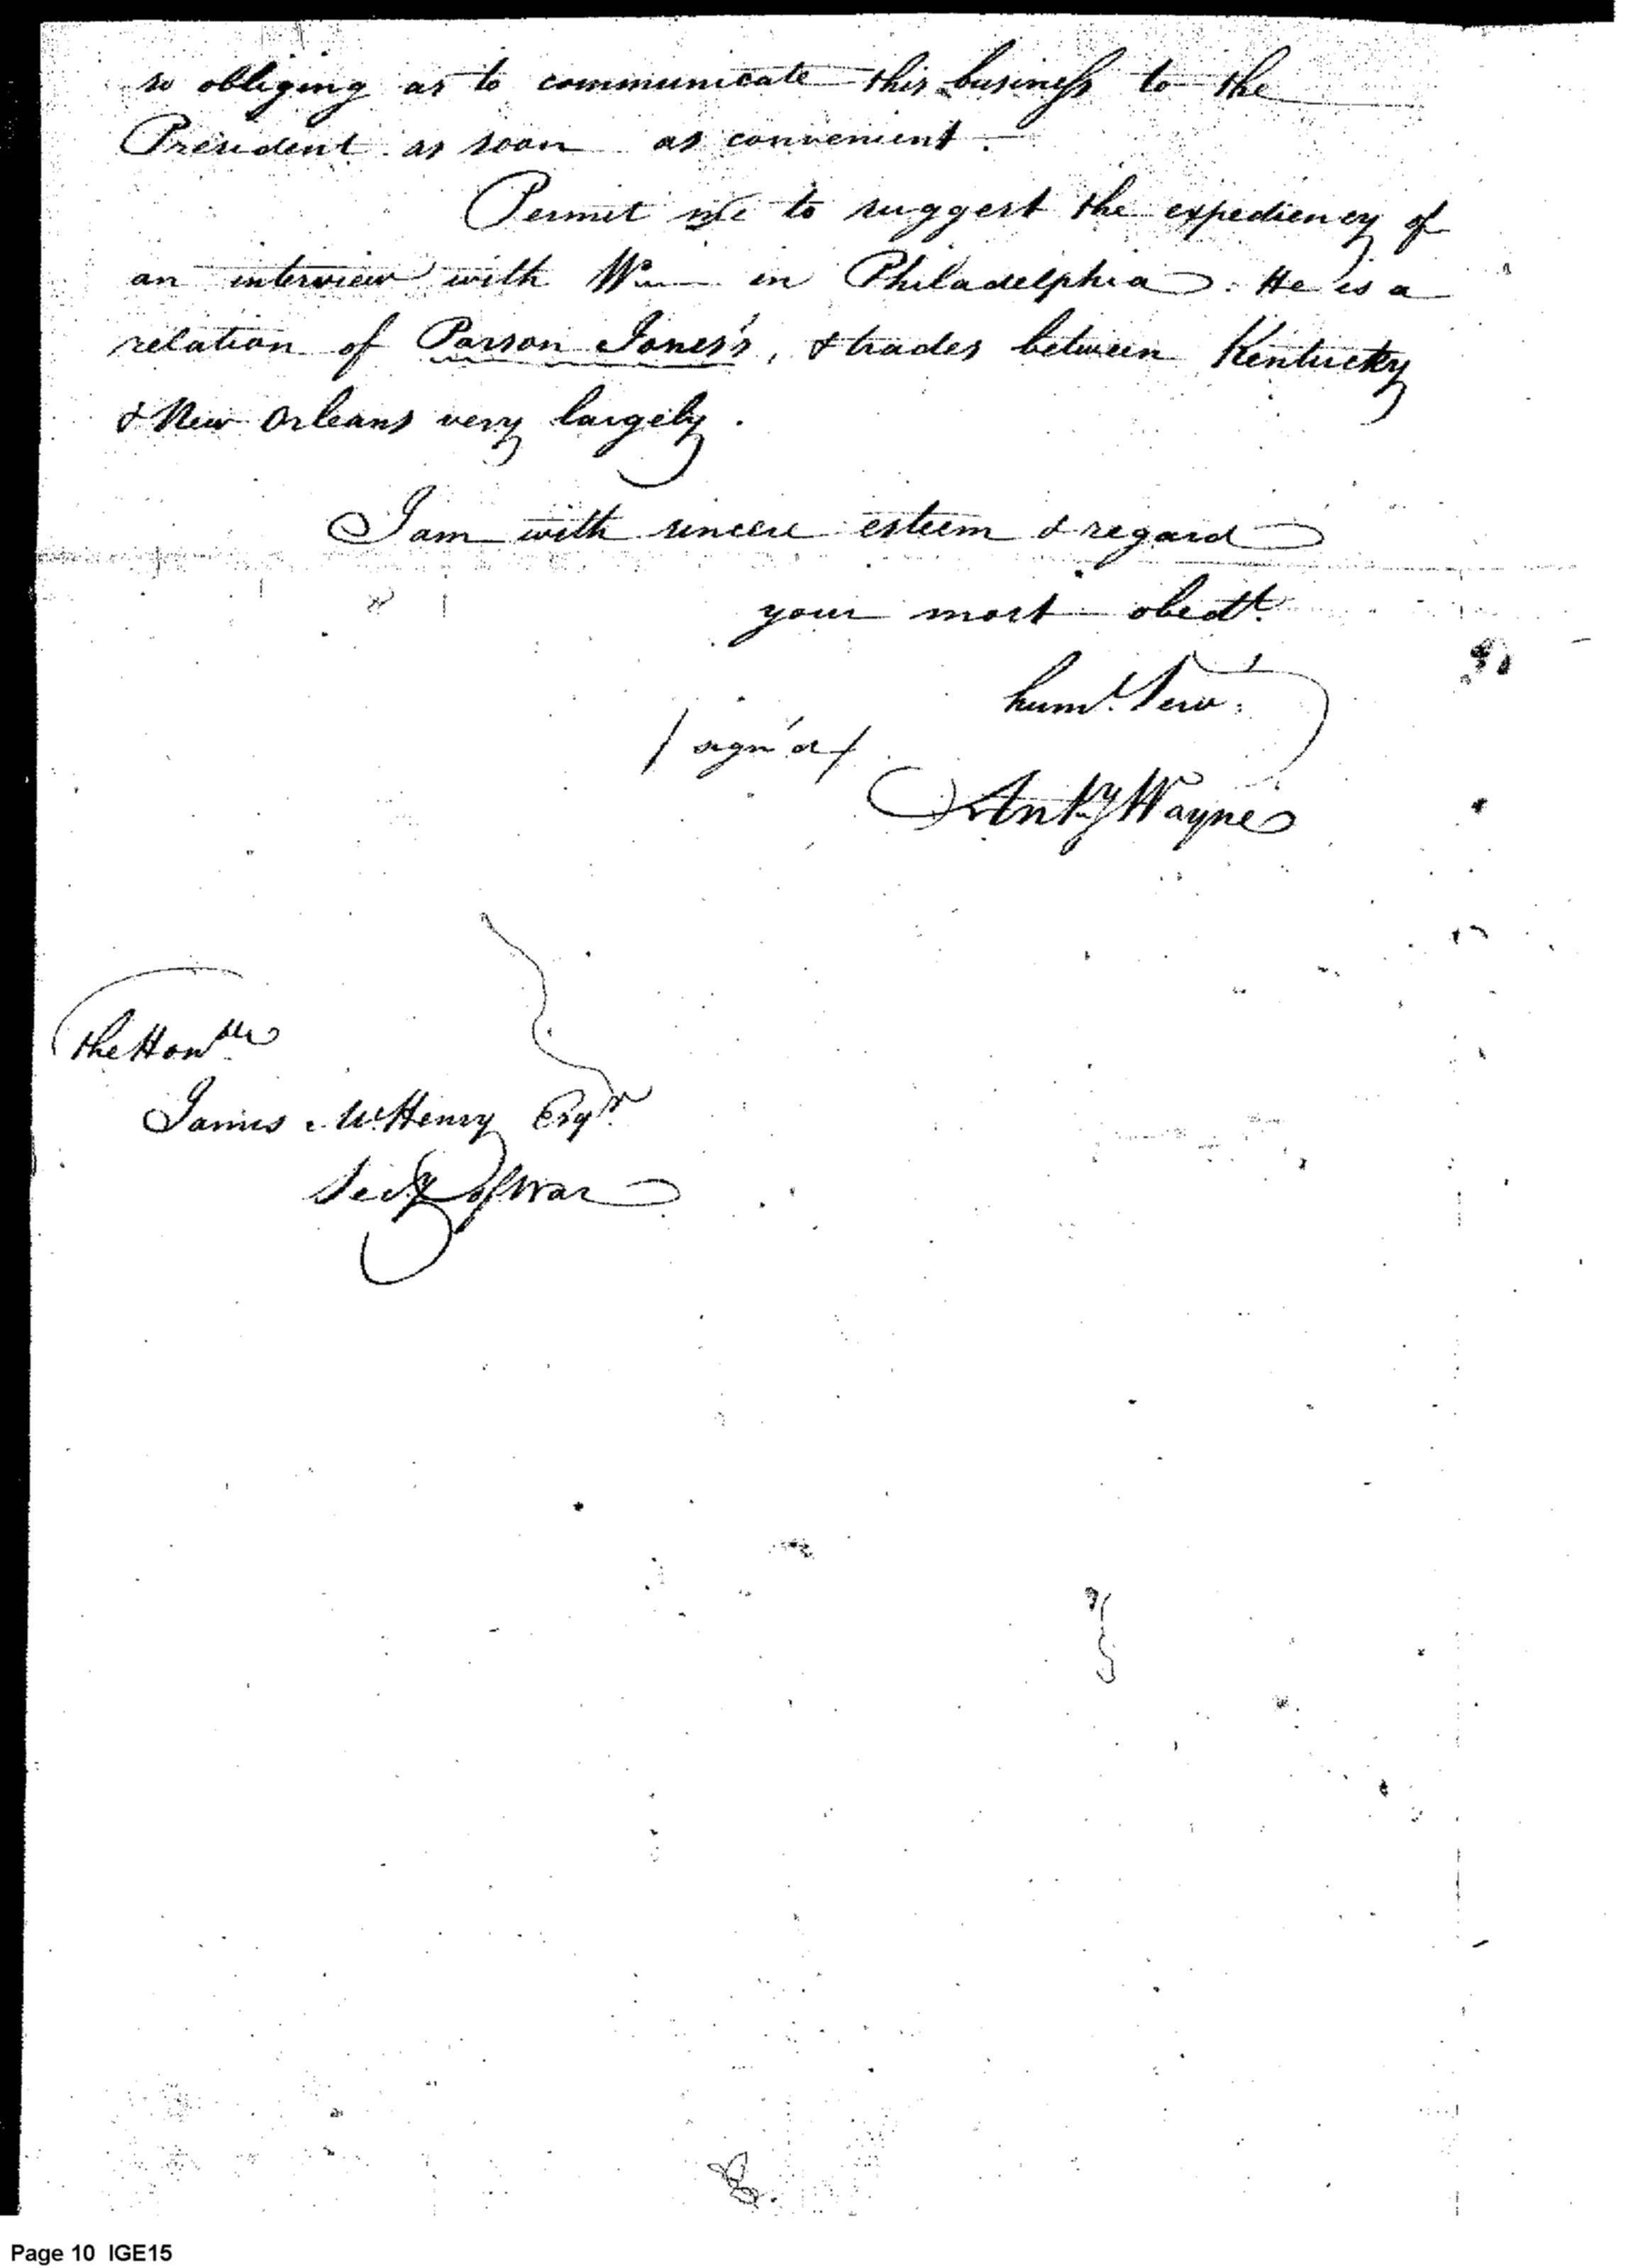 so obliging as to communicate this business to the
President as soon as convenient.
Permit me to suggest the expediency of
an interview with W— in Philadelphia. He is a
relation of Parson Jones's, & trades between Kentucky
& New Orleans very largely.
I am with sincere esteem & regard
your most obedt.
huml. Serv:
/sign'd/
Anty Wayne
The Honble
James McHenry Esqr.
Secy of War
Page 10 IGE15